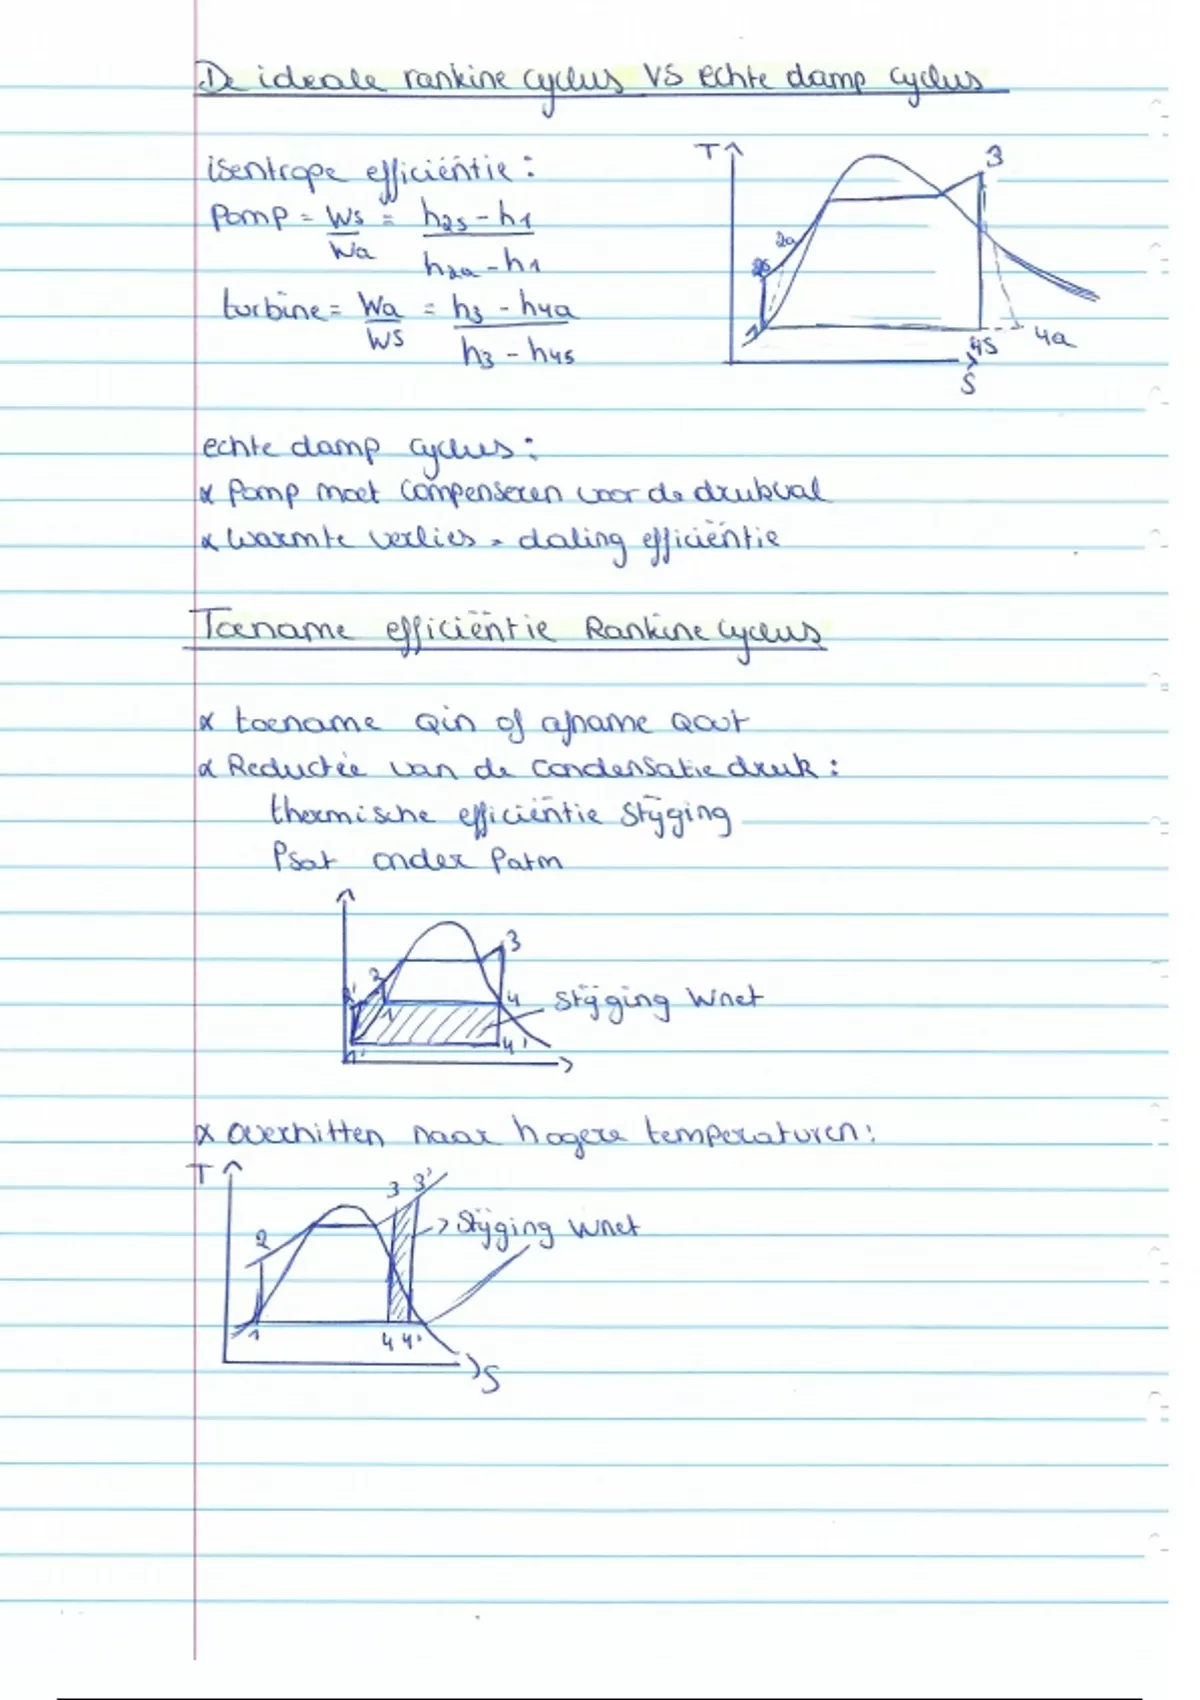 De ideale rankine cyclus VS echte damp cyclus
isentrope efficiëntie:
Pomp = Ws/Wa = h2s - h1 / h2a - h1
turbine = Wa/Ws = h3 - h4a / h3 - h4s
T
3
2a
2s
1
4s
4a
S
echte damp cyclus:
x Pomp moet compenseren voor de drukval
x Warmte verlies = daling efficiëntie
Toename efficiëntie Rankine cyclus
x toename Qin of afname Qout
x Reductie van de condensatie druk:
thermische efficiëntie stijging
Psat onder Patm
3
2
2'
1
4
stijging Wnet
1'
4'
x overhitten naar hogere temperaturen:
T
3 3'
2
> Stijging Wnet
1
4 4'
S